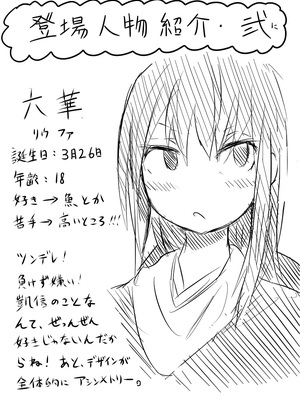 登場人物紹介・弐に
六華
リウファ
誕生日：3月26日
年齢：18
好き→魚とか
苦手→高いところ!!!
ツンデレ！
負けず嫌い！
凱信のことな
んて、ぜっんぜん
好きじゃないんだか
らね！あと、デザインが
全体的にアシンメトリー。